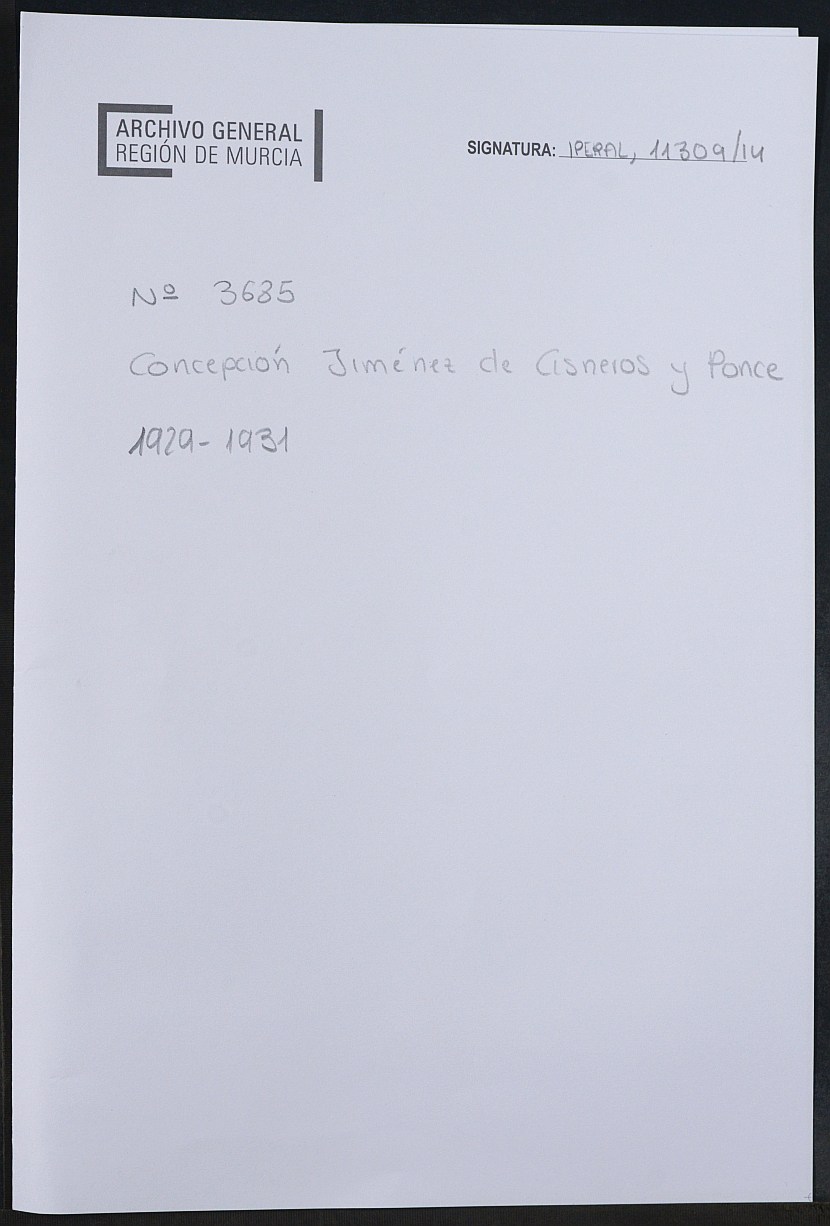 ARCHIVO GENERAL
REGIÓN DE MURCIA
SIGNATURA: IPERAL, 11309/14
Nº 3685
Concepción Jiménez de Cisneros y Ponce
1929-1931